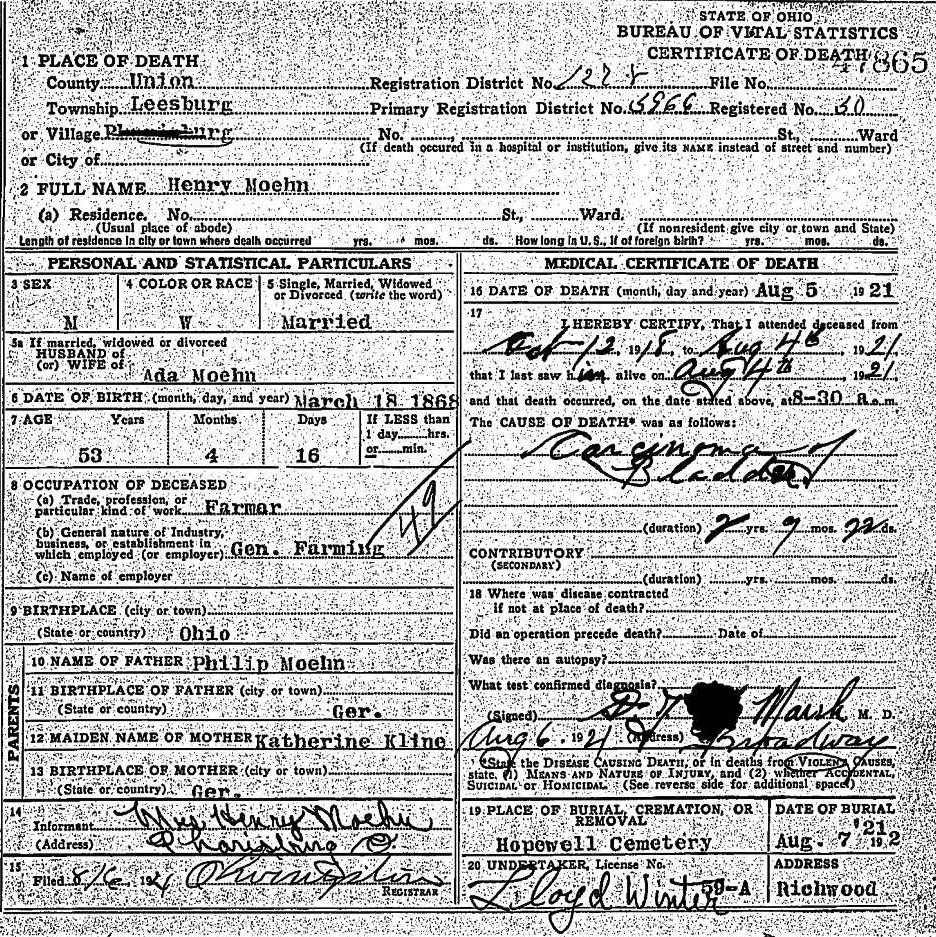 STATE OF OHIO
BUREAU OF VITAL STATISTICS
CERTIFICATE OF DEATH
47865
1 PLACE OF DEATH
County Union Registration District No. 1278 File No.
Township Leesburg Primary Registration District No. 5966 Registered No. 30
or Village No. St., Ward
(If death occured in a hospital or institution, give its NAME instead of street and number)
or City of
2 FULL NAME Henry Moehn
(a) Residence. No. St., Ward.
(Usual place of abode) (If nonresident give city or town and State)
Length of residence in city or town where death occurred yrs. mos. ds. How long in U.S., if of foreign birth? yrs. mos. ds.
PERSONAL AND STATISTICAL PARTICULARS
3 SEX 4 COLOR OR RACE 5 Single, Married, Widowed
or Divorced (write the word)
M W Married
5a If married, widowed or divorced
HUSBAND of
(or) WIFE of
Ada Moehn
6 DATE OF BIRTH (month, day, and year) March 18 1868
7 AGE Years Months Days If LESS than
1 day hrs.
or min.
53 4 16
8 OCCUPATION OF DECEASED
(a) Trade, profession, or
particular kind of work Farmer
(b) General nature of Industry,
business, or establishment in
which employed (or employer) Gen. Farming
49
(c) Name of employer
9 BIRTHPLACE (city or town)
(State or country) Ohio
PARENTS
10 NAME OF FATHER Philip Moehn
11 BIRTHPLACE OF FATHER (city or town)
(State or country) Ger.
12 MAIDEN NAME OF MOTHER Katherine Kline
13 BIRTHPLACE OF MOTHER (city or town)
(State or country) Ger.
14
Informant Mrs Henry Moehn
(Address) Pharisburg O.
15
Filed 8/6, 1921
REGISTRAR
MEDICAL CERTIFICATE OF DEATH
16 DATE OF DEATH (month, day and year) Aug 5 1921
17
I HEREBY CERTIFY, That I attended deceased from
Oct 12, 1918, to Aug 4th, 1921,
that I last saw him alive on Aug 4th, 1921
and that death occurred, on the date stated above, at 8-30 a.m.
The CAUSE OF DEATH* was as follows:
Carcinoma of
Bladder
(duration) 2 yrs. 9 mos. 22 ds.
CONTRIBUTORY
(SECONDARY)
(duration) yrs. mos. ds.
18 Where was disease contracted
if not at place of death?
Did an operation precede death? Date of
Was there an autopsy?
What test confirmed diagnosis?
(Signed) Marsh M. D.
Aug 6, 1921 (Address) Broadway
*State the DISEASE CAUSING DEATH, or in deaths from VIOLENT CAUSES,
state, (1) MEANS AND NATURE OF INJURY, and (2) whether ACCIDENTAL,
SUICIDAL or HOMICIDAL. (See reverse side for additional space)
19 PLACE OF BURIAL, CREMATION, OR
REMOVAL
Hopewell Cemetery
DATE OF BURIAL
Aug. 7 '21 192
20 UNDERTAKER, License No.
Lloyd Winter 59-A
ADDRESS
Richwood